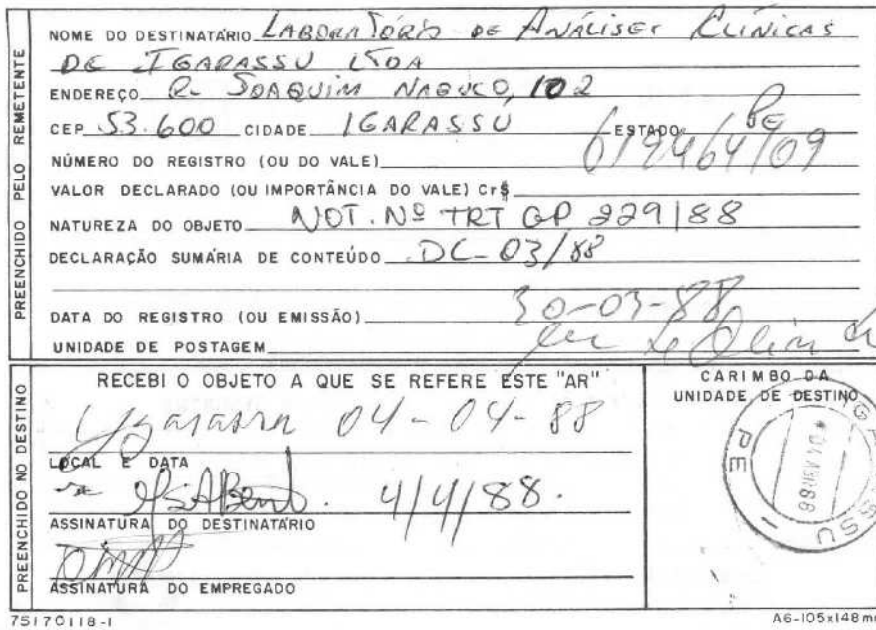 PREENCHIDO PELO REMETENTE
NOME DO DESTINATÁRIO LABORATÓRIO DE ANÁLISES CLÍNICAS
DE IGARASSU LTDA
ENDEREÇO R. JOAQUIM NABUCO, 102
CEP 53.600 CIDADE IGARASSU ESTADO PE
NÚMERO DO REGISTRO (OU DO VALE) 619464/09
VALOR DECLARADO (OU IMPORTÂNCIA DO VALE) Cr$
NATUREZA DO OBJETO NOT. Nº TRT GP 229/88
DECLARAÇÃO SUMÁRIA DE CONTEÚDO DC-03/88
DATA DO REGISTRO (OU EMISSÃO) 30-03-88
UNIDADE DE POSTAGEM
PREENCHIDO NO DESTINO
RECEBI O OBJETO A QUE SE REFERE ESTE "AR"
Ygarassu 04-04-88
LOCAL E DATA
4/4/88.
ASSINATURA DO DESTINATÁRIO
ASSINATURA DO EMPREGADO
CARIMBO DA
UNIDADE DE DESTINO
IGARASSU - PE
75170118-1
A6-105x148mm